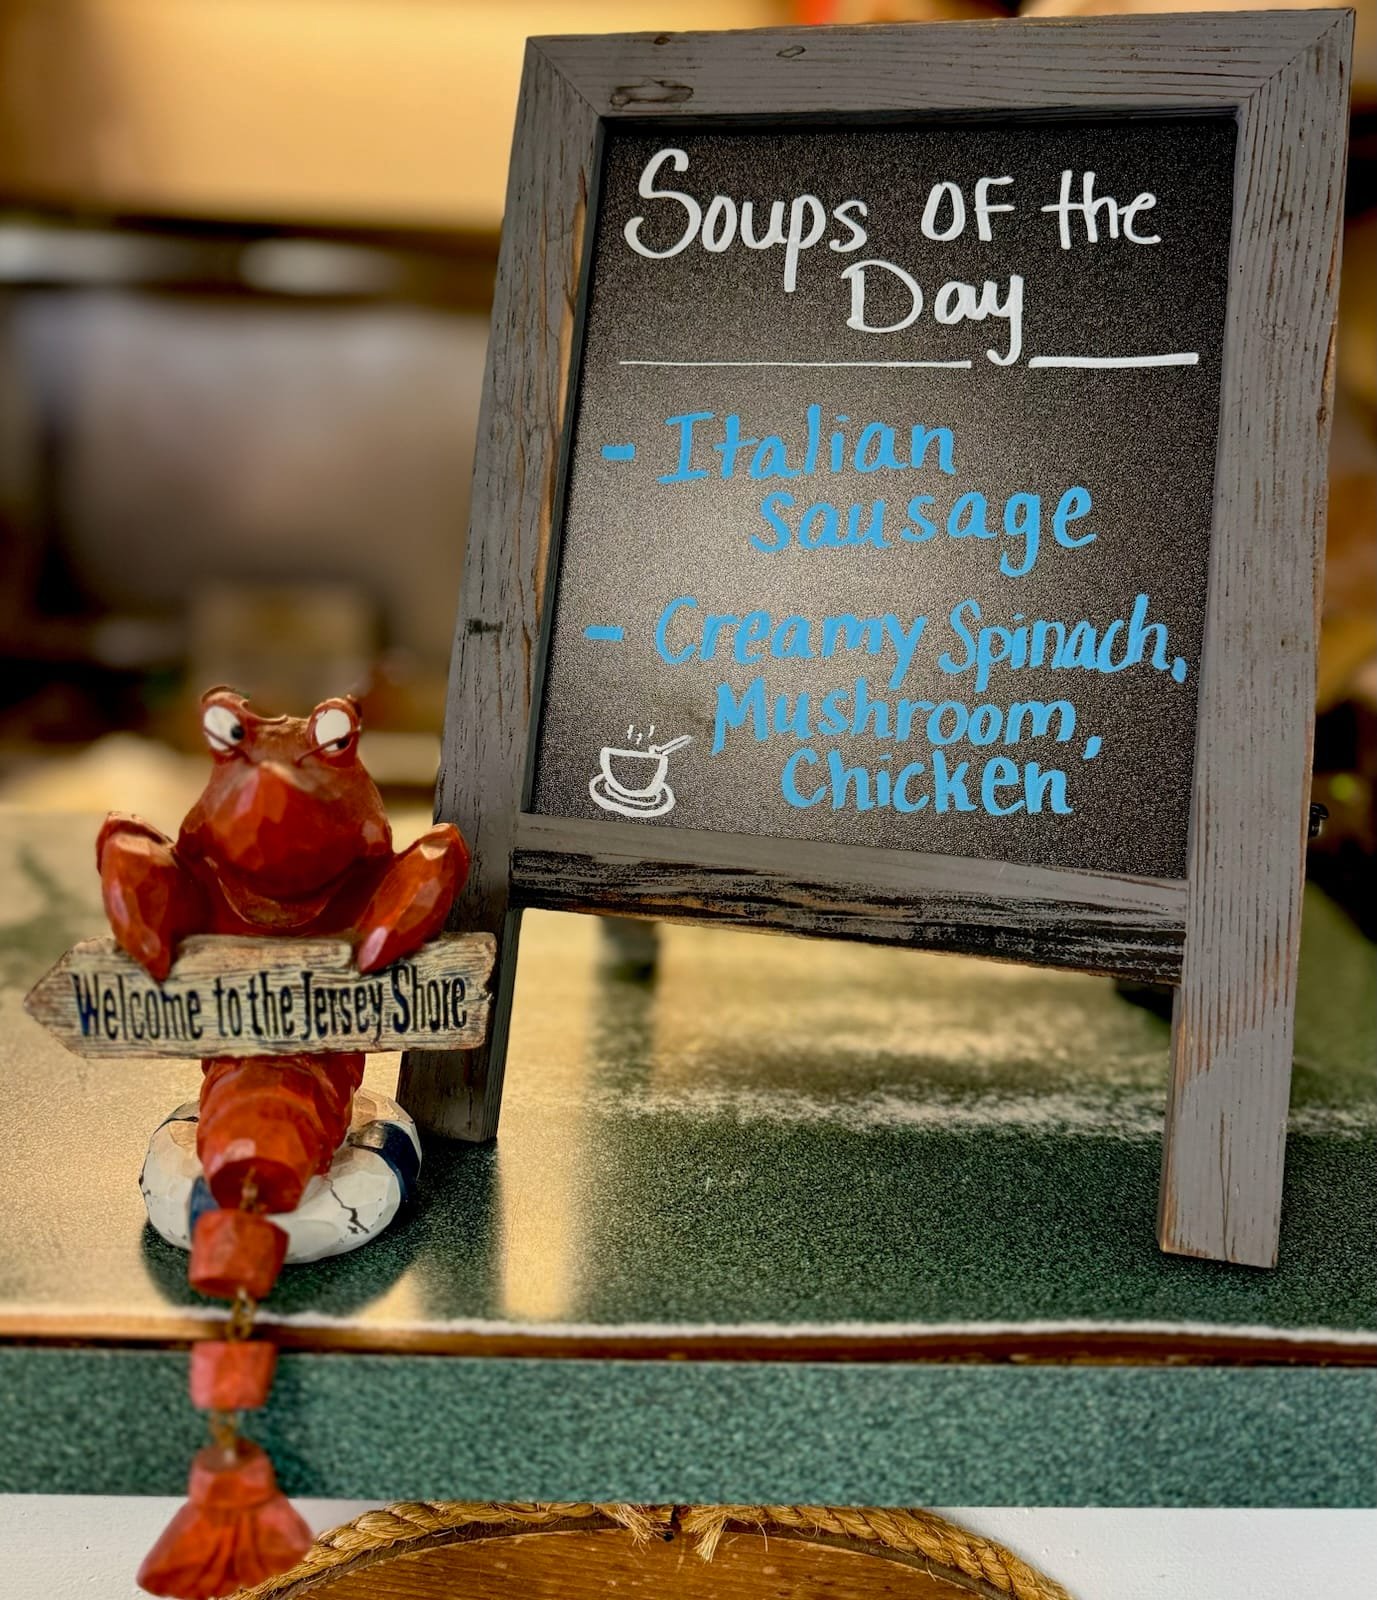 Soups of the
Day
- Italian
Sausage
- Creamy Spinach,
Mushroom,
Chicken
Welcome to the Jersey Shore